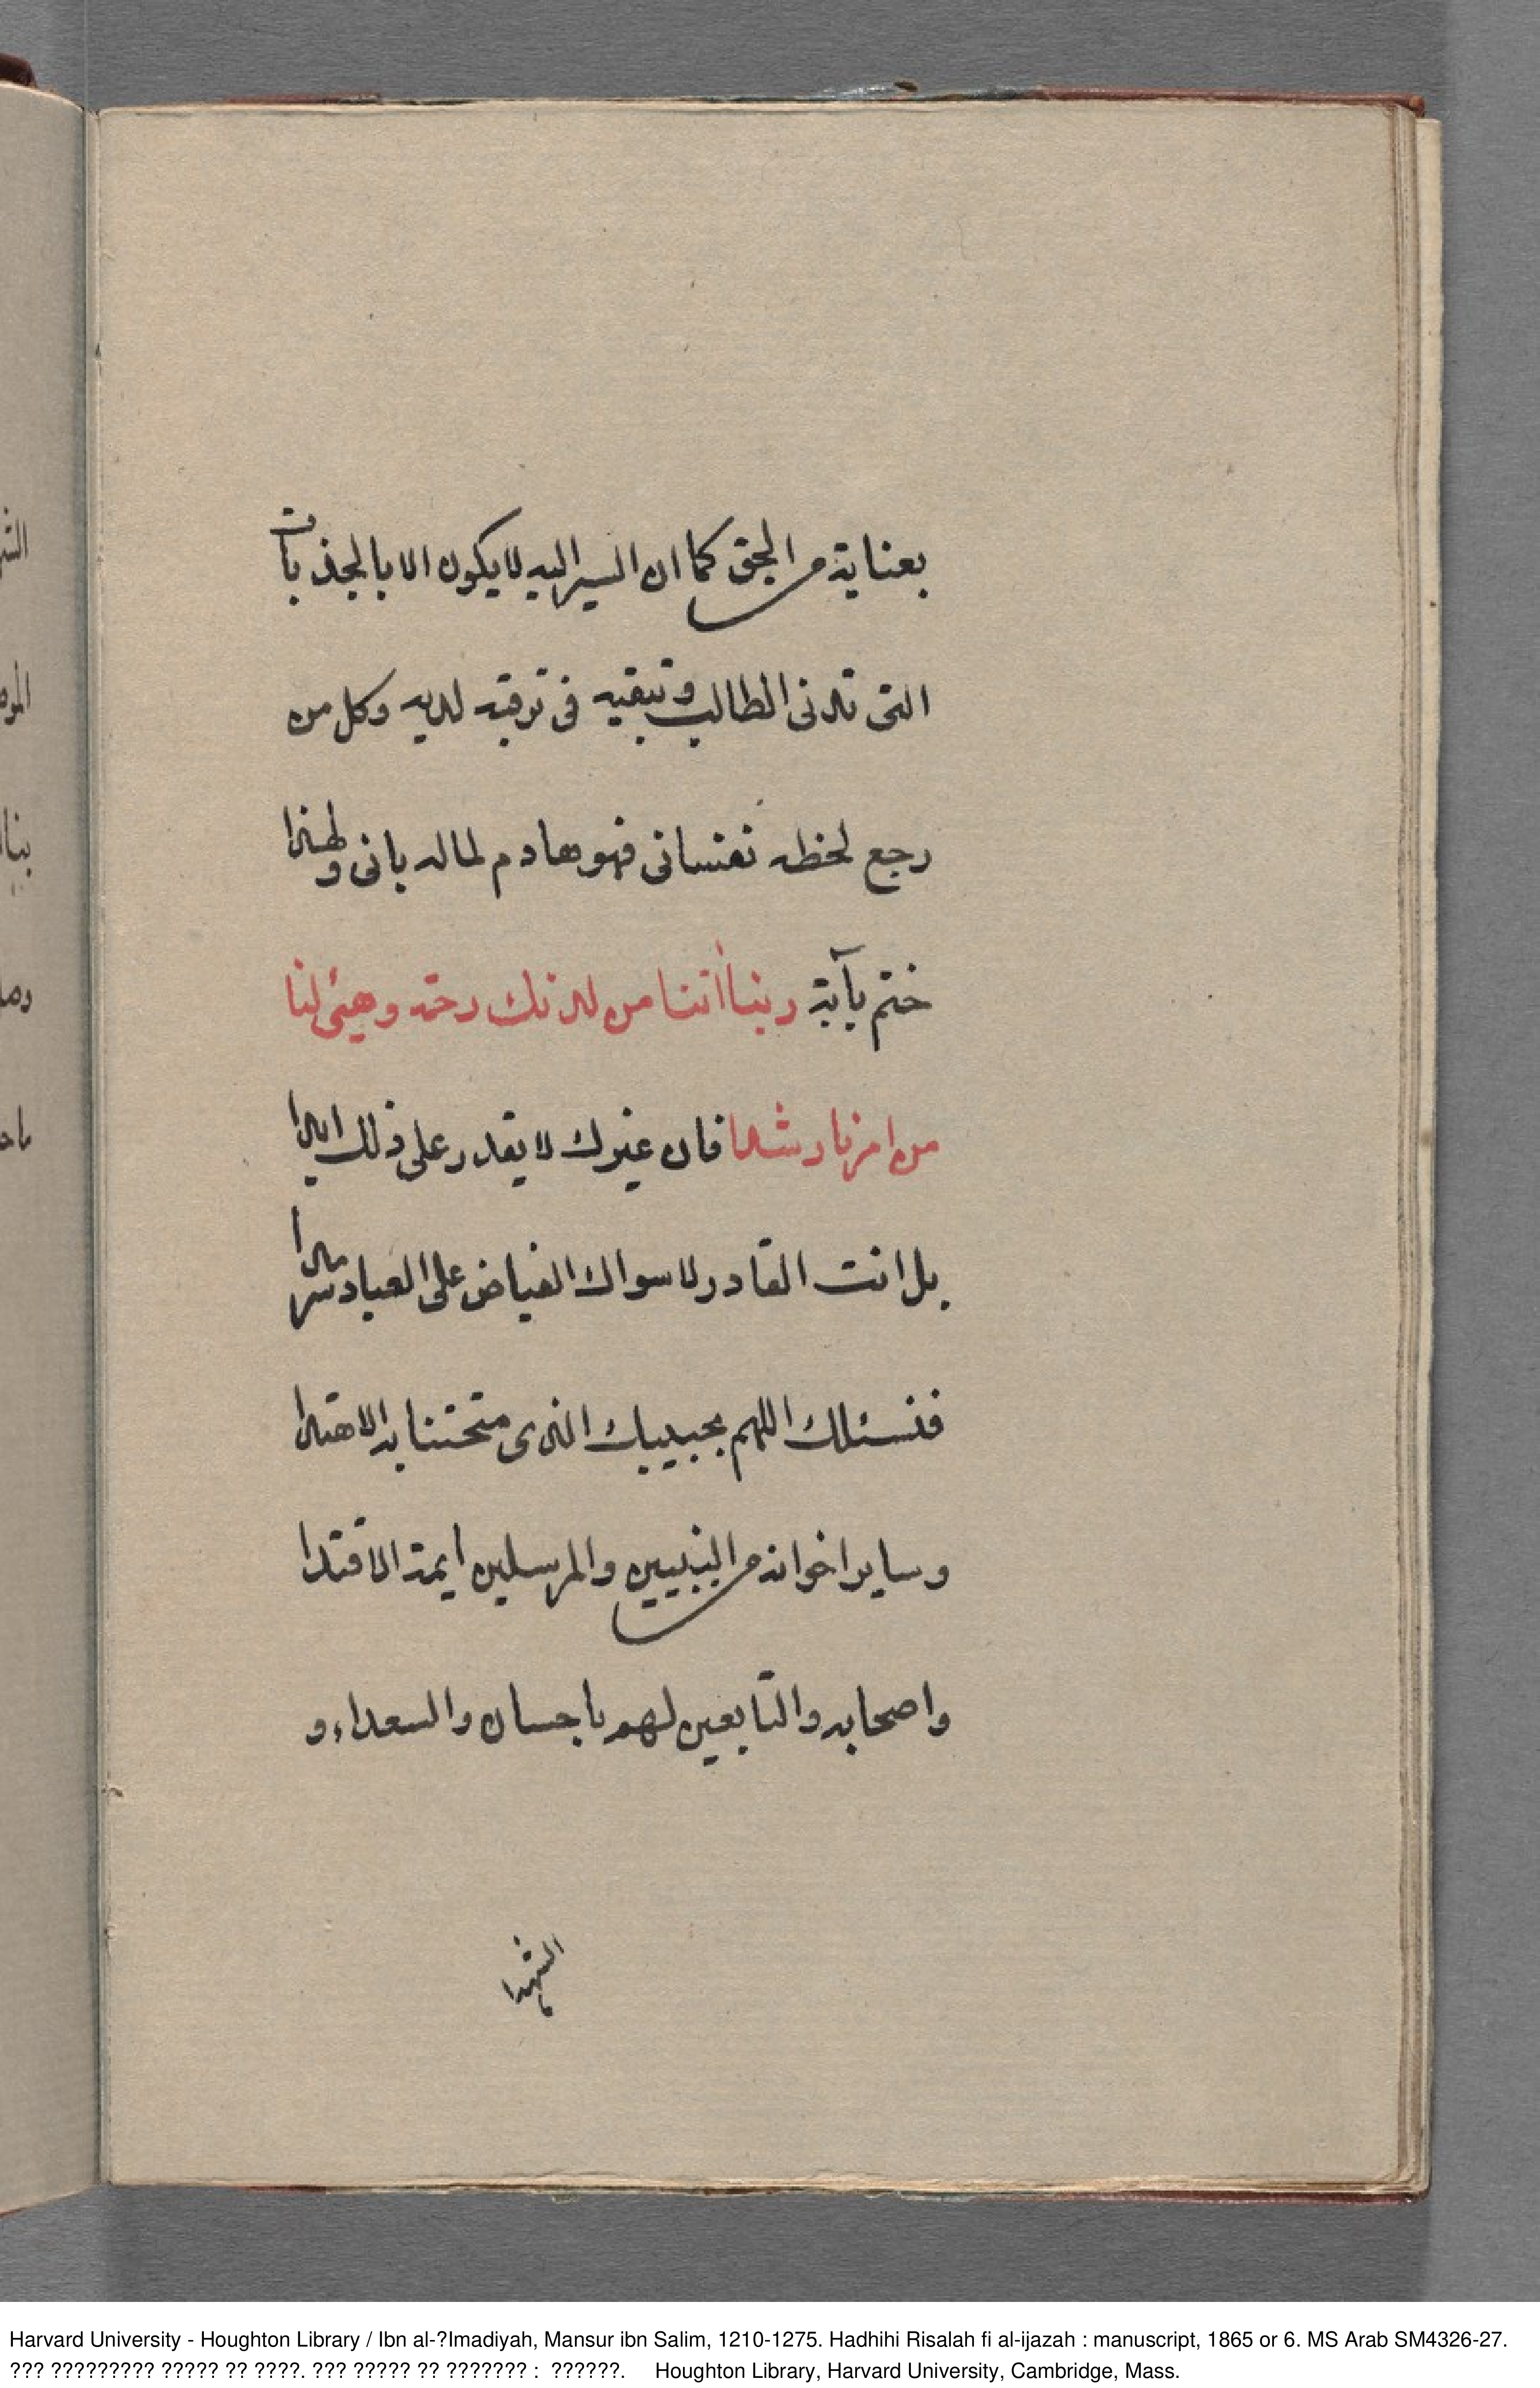 بعناية من الحق كما ان السير اليه لا يكون الا بالجذبات
التى تدنى الطالب وتبقيه فى ترقيه لديه وكل من
رجع لحظه نفسانى فهو هادم لماله بانى ولهذا
ختم بآية ربنا اتنا من لدنك رحمة وهيئ لنا
من امرنا رشدا فان غيرك لا يقدر على ذلك ابدا
بل انت القادر لا سواك الفياض على العباد سرمدا
فنسئلك اللهم بحبيبك الذى منحتنا به الاهتدا
وساير اخوانه من النبيين والمرسلين ايمة الاقتدا
واصحابه والتابعين لهم باحسان والسعداء و
الشهدا
Harvard University - Houghton Library / Ibn al-?Imadiyah, Mansur ibn Salim, 1210-1275. Hadhihi Risalah fi al-ijazah : manuscript, 1865 or 6. MS Arab SM4326-27.
??? ????????? ????? ?? ????. ??? ????? ?? ??????? : ??????. Houghton Library, Harvard University, Cambridge, Mass.